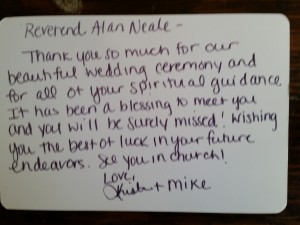 Reverend Alan Neale -
Thank you so much for our
beautiful wedding ceremony and
for all of your spiritual guidance.
It has been a blessing to meet you
and you will be surely missed! Wishing
you the best of luck in your future
endeavors. See you in church!
Love,
+ Mike